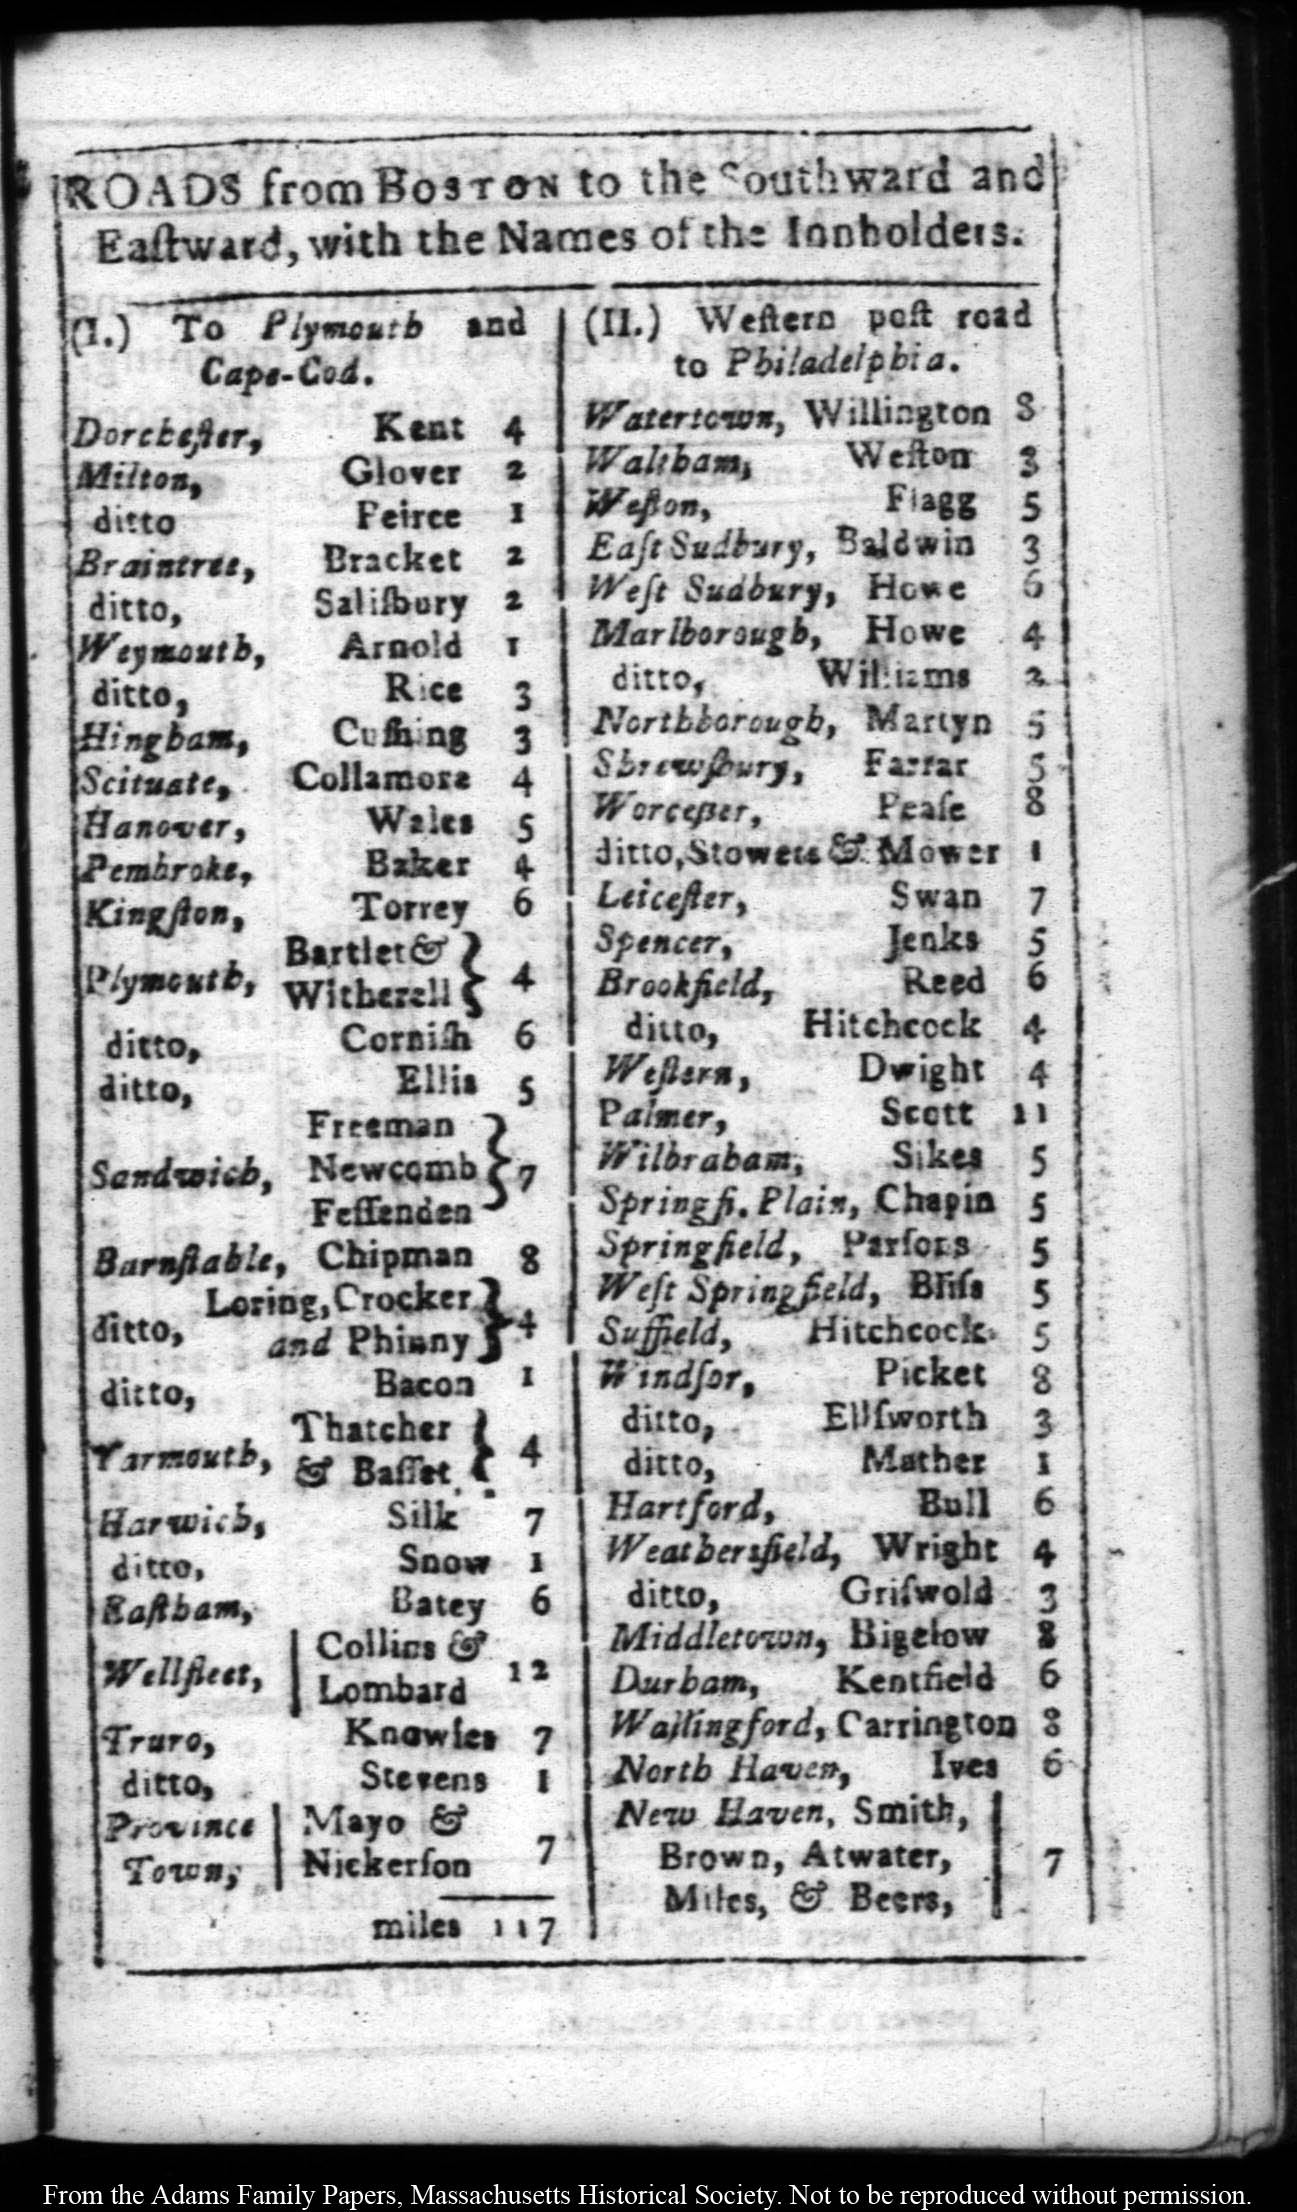 ROADS from BOSTON to the Southward and
Eaſtward, with the Names of the Innholders.
(I.) To Plymouth and
Cape-Cod.
Dorcheſter, Kent 4
Milton, Glover 2
ditto Peirce 1
Braintree, Bracket 2
ditto, Saliſbury 2
Weymouth, Arnold 1
ditto, Rice 3
Hingham, Cuſhing 3
Scituate, Collamore 4
Hanover, Wales 5
Pembroke, Baker 4
Kingſton, Torrey 6
Bartlet &
Plymouth, Witherell } 4
ditto, Corniſh 6
ditto, Ellis 5
Freeman
Sandwich, Newcomb } 7
Feſſenden
Barnſtable, Chipman 8
Loring, Crocker
ditto, and Phinny } 4
ditto, Bacon 1
Thatcher
Yarmouth, & Baſſet, } 4
Harwich, Silk 7
ditto, Snow 1
Eaſtham, Batey 6
Collins &
Wellfleet, Lombard 12
Truro, Knowles 7
ditto, Stevens 1
Province Mayo &
Town, Nickerſon 7
miles 117
(II.) Weſtern poſt road
to Philadelphia.
Watertown, Willington 8
Waltham, Weſton 3
Weſton, Flagg 5
Eaſt Sudbury, Baldwin 3
Weſt Sudbury, Howe 6
Marlborough, Howe 4
ditto, Williams 2
Northborough, Martyn 5
Shrewſbury, Farrar 5
Worceſter, Peaſe 8
ditto, Stowers & Mower 1
Leiceſter, Swan 7
Spencer, Jenks 5
Brookfield, Reed 6
ditto, Hitchcock 4
Weſtern, Dwight 4
Palmer, Scott 11
Wilbraham, Sikes 5
Springfi. Plain, Chapin 5
Springfield, Parſons 5
Weſt Springfield, Bliſs 5
Suffield, Hitchcock 5
Windſor, Picket 8
ditto, Ellſworth 3
ditto, Mather 1
Hartford, Bull 6
Weathersfield, Wright 4
ditto, Griſwold 3
Middletown, Bigelow 8
Durham, Kentfield 6
Wallingford, Carrington 8
North Haven, Ives 6
New Haven, Smith,
Brown, Atwater, 7
Miles, & Beers,
From the Adams Family Papers, Massachusetts Historical Society. Not to be reproduced without permission.